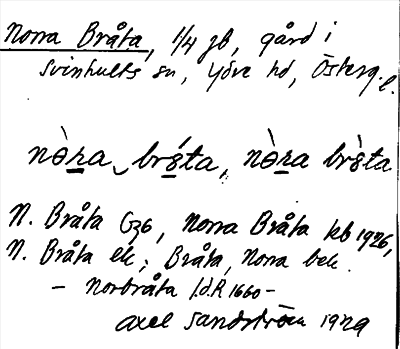 Norra Bråta, 1/4 jb, gård i
Svinhults sn, Ydre hd, Österg. l.
nò̱ra ‿ brs̱ta, nò̱ra brs̀ta
N. Bråta G36, Norra Bråta kb 1926,
N. Bråta ek; Bråta, Norra bek.
— Norbråta J.d.R 1660 —
Axel Sandström 1929